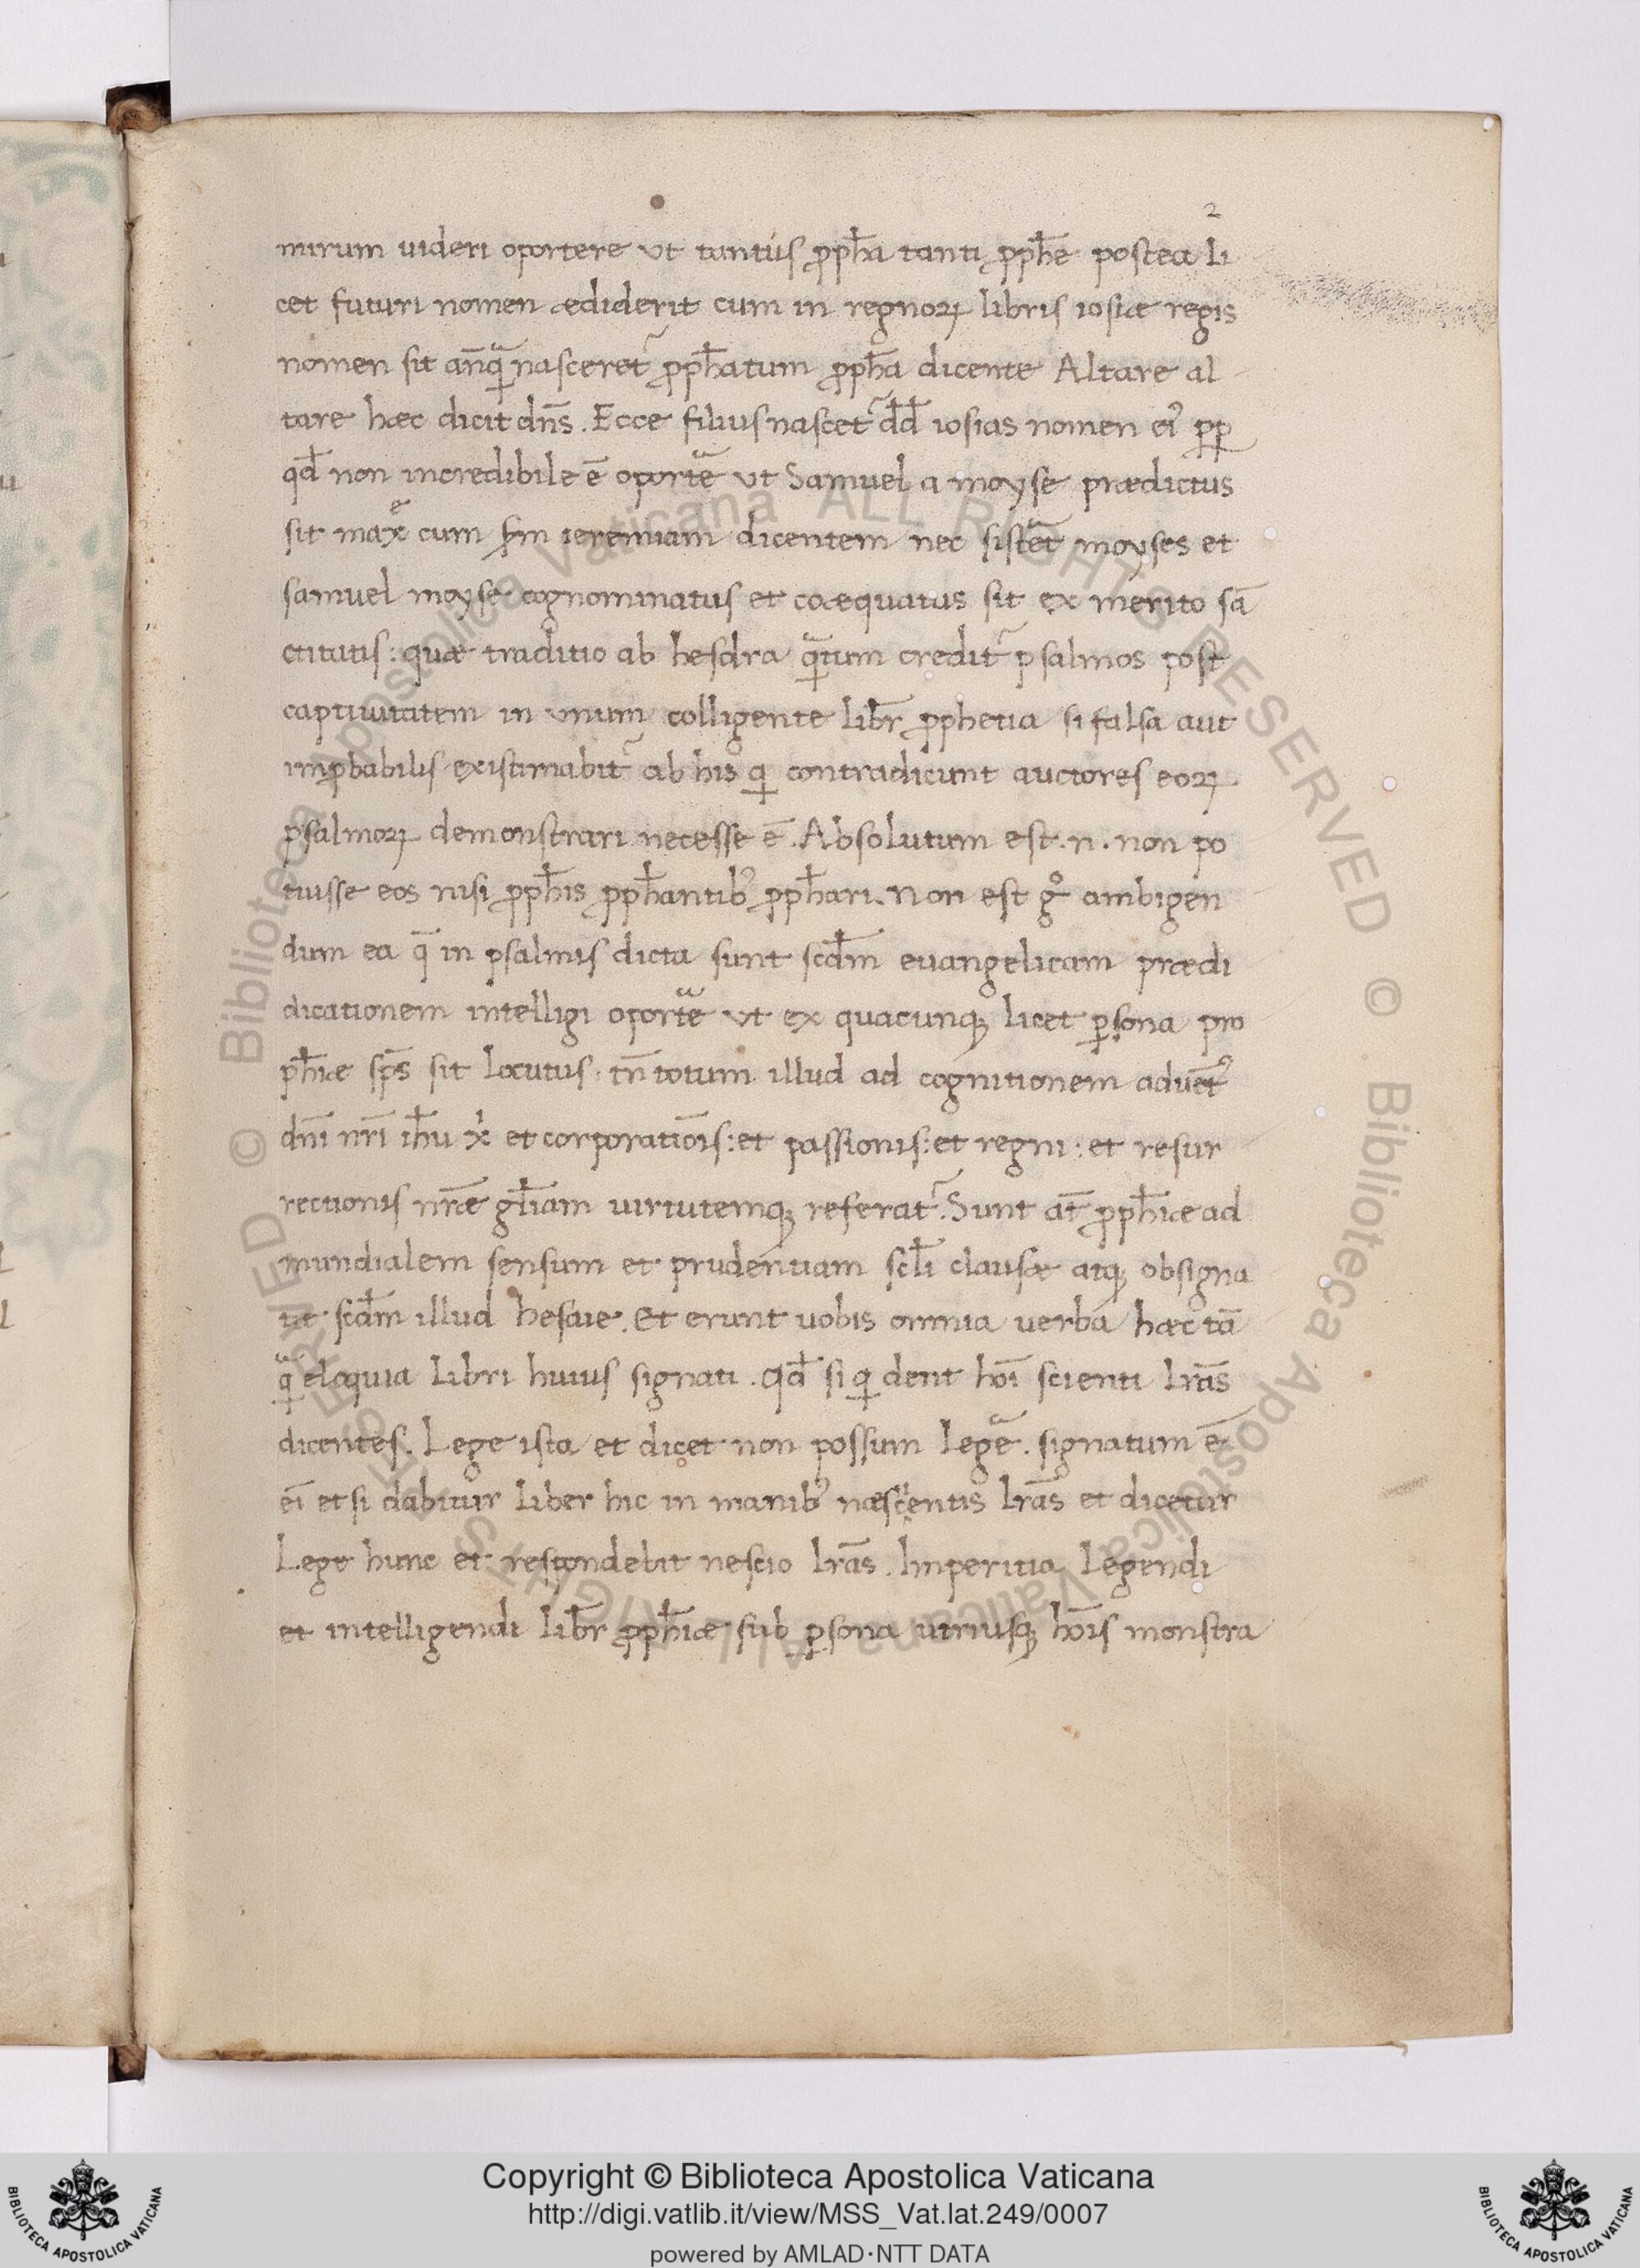 2
mirum uideri oportere vt tantus ꝓph̄a tanti ꝓph̄e postea li
cet futuri nomen ædiderit cum in regnoꝝ libris iosiæ regis
nomen sit an̄qᷓ nasceret᷑ ꝓph̄atum ꝓph̄a dicente Altare al
tare hæc dicit dn̄s. Ecce filius nascet᷑ dd̄ iosias nomen eiꝰ ꝓp
qd̄ non incredibile ē oportēa vt Samuel a moyse prædictus
sit maxe cum sm̄ ieremiam dicentem nec sistēt moyses et
samuel moyse cognominatus et coæquatus sit ex merito sā
ctitatis: quæ traditio ab hesdra qᷓtum credit᷑ psalmos post
captiuitatem in vnum colligente libr̄ ꝓphetia si falsa aut
imꝓbabilis existimabit᷑ ab his qi contradicunt auctores eoꝝ
psalmoꝝ demonstrari necesse ē. Absolutum est .n. non po
tuisse eos nisi ꝓph̄is ꝓph̄antibꝰ ꝓph̄ari. Non est gº ambigen
dum ea q̄ in psalmis dicta sunt scd̄m euangelicam prædi
dicationem intelligi oportēa vt ex quacunqꝫ licet ꝑsona pro
ph̄iæ sp̄s sit locutus. tn̄ totum illud ad cognitionem aduētꝰ
dn̄i nr̄i ih̄u xi et corporatiōis: et passionis: et regni: et resur
rectionis nr̄æ gl̄iam uirtutemqꝫ referat᷑. Sunt at̄ ꝓph̄iæ ad
mundialem sensum et prudentiam scl̄i clausæ atqꝫ obsigna
tæ scd̄m illud hesaie. Et erunt uobis omnia verba hæc tā
qᷓ eloquia libri huius signati. Qd̄ si qi dent hōi scienti lr̄as
dicentes. Lege ista et dicet non possum legēa. signatum ē
eī et si dabitur liber hic in manibꝰ næscientis lr̄as et dicetur
Lege hunc et respondebit nescio lr̄as. Imperitia legendi
et intelligendi libr̄ ꝓph̄iæ sub ꝑsona utriusqꝫ hōis monstra
© Biblioteca Apostolica Vaticana ALL RIGHTS RESERVED © Biblioteca Apostolica Vaticana ALL RIGHTS RESERVED
Copyright © Biblioteca Apostolica Vaticana
http://digi.vatlib.it/view/MSS_Vat.lat.249/0007
powered by AMLAD·NTT DATA
BIBLIOTECA APOSTOLICA VATICANA
BIBLIOTECA APOSTOLICA VATICANA